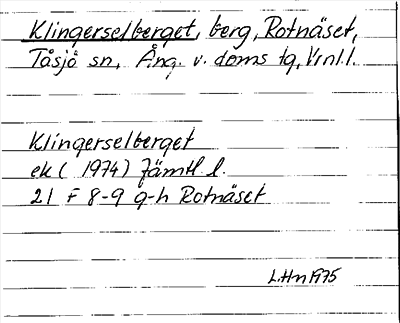 Klingerselberget, berg, Rotnäset,
Tåsjö sn, Ång. v. doms tg, Vrnl l.
Klingerselberget
ek ( 1974) Jämtl. l.
21 F 8-9 g-h Rotnäset
L.Hm 1975